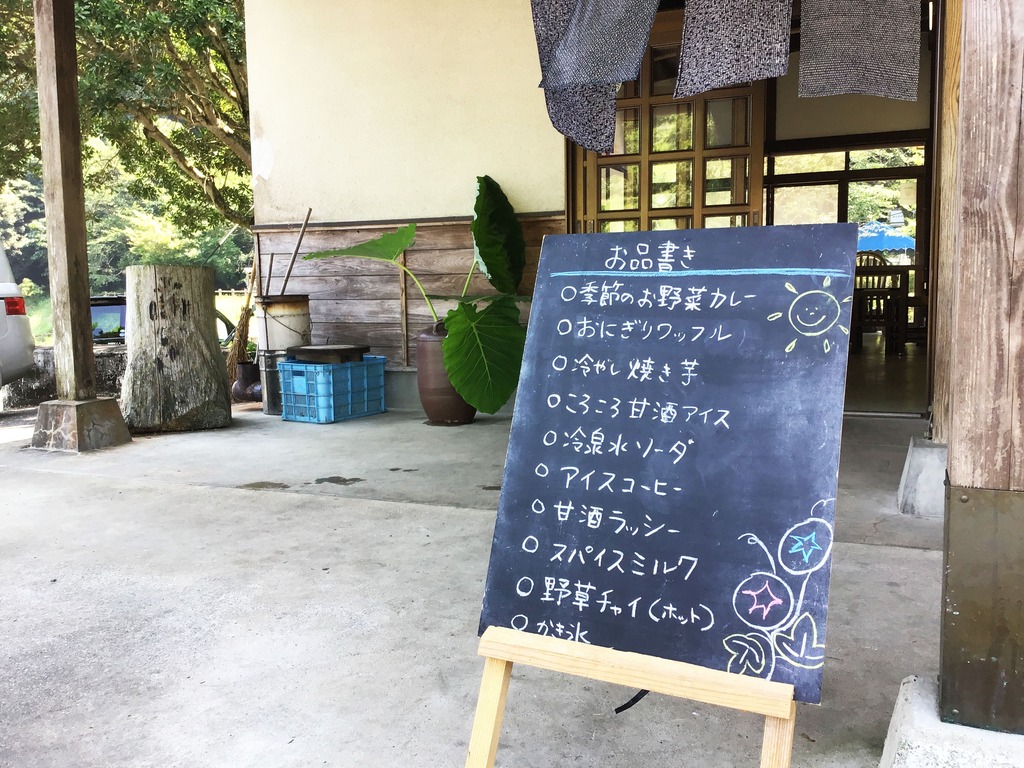 お品書き
○季節のお野菜カレー
○おにぎりワッフル
○冷やし焼き芋
○ころころ甘酒アイス
○冷泉水ソーダ
○アイスコーヒー
○甘酒ラッシー
○スパイスミルク
○野草チャイ(ホット)
○かき氷